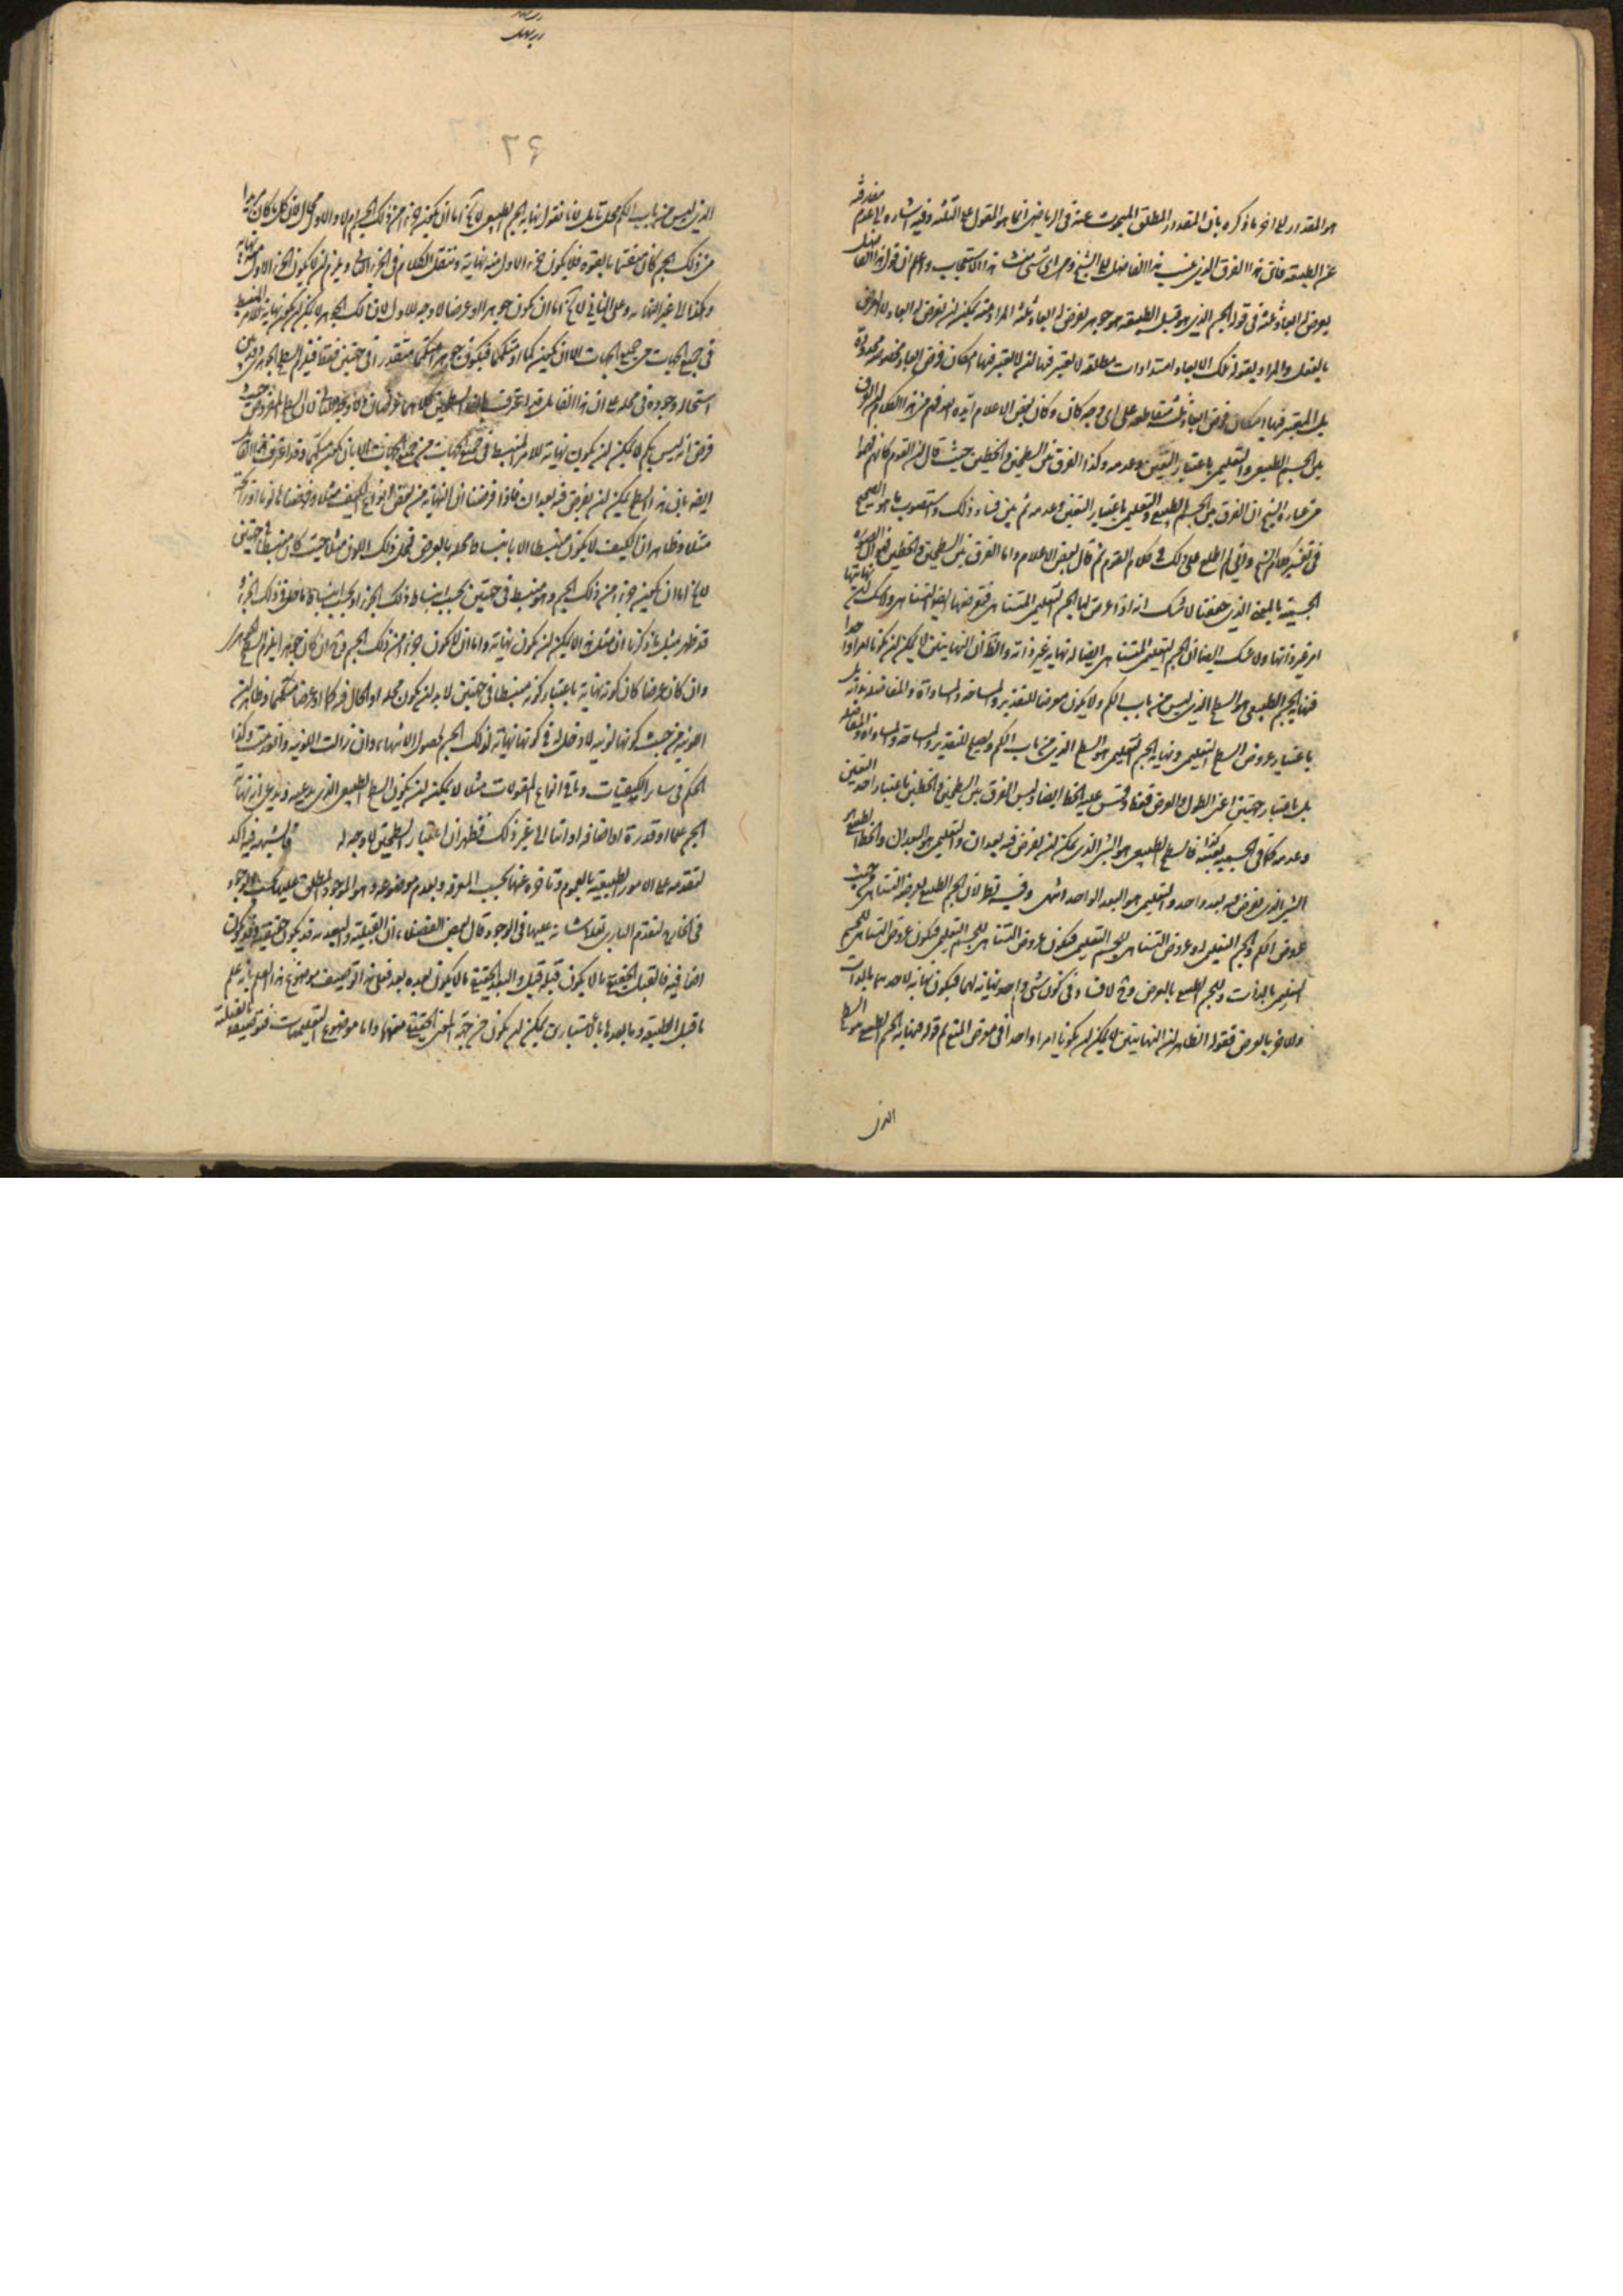 هو المقدور الى اخر ما ذكره بان المقدور المطلق المبحوث عنه فى الرياضى انما هو المقول على الثلثه وفيه اشاره الى عدم مفارقته
عن الطبيعه فاتى هذا الفرق الذى من هذا الفاضل الى الشيخ وهو اى شىء منشأ هذا الاستعجاب واعلم ان قول هذا الفاضل
يعرض ابعاد ثلثه فى قوله الجسم الذى هو قبل الطبيعه هو جوهر يعرض له ابعاد ثلثه المراد منه يمكن ان يفرض له ابعاد لا يفرض
بالفعل والمراد بقوله تلك الابعاد امتدادات مطلقه لا يعتبر فيها ان لا يعتبر فيها امكان فرض ابعاد مخصوصه محدوده
بل المعتبر فيها امكان فرض ابعاد ثلثه متقاطعه على اى وجه كان وكان بعض الاعلام ايده الله فهم من هذا الكلام ان الفرق
بين الجسم الطبيعى والتعليمى باعتبار التعين وعدمه وكذا الفرق بين السطحين والخطين حيث قال ان القوم كانهم فهموا
من عبارة الشيخ ان الفرق بين الجسم الطبيعى والتعليمى باعتبار التعين وعدمه ثم بين فساد ذلك واستصوب ما هو الصحيح
فى تفسير كلام الشيخ وانى لم اطلع على ذلك فى كلام القوم ثم قال بعض الاعلام واما الفرق بين السطحين والخطين فهو ان الصورة
الجسمية بالمعنى الذى حققنا لا شك انه اذا عرض لها الجسم التعليمى المتناهى فتعرضها ايضا التناهى ولا شك ان نهايتها
امر غير ذاتها ولا شك ايضا ان الجسم التعليمى المتناهى ايضا له نهاية غير ذاته والظ ان النهايتين لا يمكن ان يكونا امرا واحدا
فنهاية الجسم الطبيعى هو السطح الذى ليس من باب الكم ولا يكون معروضا للتقدير والمساحة والمساواة والمفاضلة بذاته بل
باعتبار عروض السطح التعليمى ونهاية الجسم التعليمى هو السطح الذى من باب الكم ويصلح للتقدير والمساحة والمساواة والمفاضلة
بل باعتبار جهتين اعنى الطول والعرض فقط وقس عليه الخط ايضا وليس الفرق بين السطحين والخطين باعتبار اخذ التعين
وعدمه كما فى الجسمية بعينه كذا فالسطح الطبيعى هو الشىء الذى يمكن ان يفرض فيه بعدان والتعليمى هو البعدان والخط الطبيعى
الشىء الذى يفرض فيه بعد واحد والتعليمى هو البعد الواحد انتهى وفيه نظر لان الجسم الطبيعى يعرضه التناهى من حيث
عروض الكم والجسم التعليمى له وعروض التناهى للجسم التعليمى فيكون عروض التناهى للجسم التعليمى فيكون عروض التناهى للجسم
التعليمى بالذات وللجسم الطبيعى بالعرض وح لا فساد فى كون شىء واحد نهاية لهما فيكون نهاية لاحدهما بالذات
وللاخر بالعرض فقوله الظاهر ان النهايتين لا يمكن ان يكونا امرا واحدا فى معرض المنع ثم قوله فنهاية الجسم الطبيعى هو السطح
الذى
٣۶
الذى ليس من باب الكم محل تامل لانا نقول نهاية الجسم الطبيعى لا يخ اما ان يكون جزء من ذلك الجسم اولا والاول محال لان كل ما كان جزءا
من ذلك الجسم كان منقسما بالقوه فلا يكون جزءه الاول منه نهاية وننقل الكلام فى الجزء الثانى ويلزم ان لا يكون الجزء الاول نهاية
وهكذا الى غير النهايه وعلى الثانى لا يخ اما ان يكون جوهرا او عرضا لا وجه للاول لان ذلك الجوهر لا يمكن ان يكون نهاية للامر المنبسط
فى جميع الجهات من جميع الجهات الا ان يكون كما او متكمما فيكون جوهرا متكمما متقدرا فى جهتين فقط فيلزم السطح الجوهرى وقد بين
استحالة وجوده فى محله على ان هذا الفاضل قد اعترف بان السطحين كلاهما عرضان ولا وجه للثانى لان السطح المفروض حيث
فرض انه ليس بكم لا يمكن ان يكون نهاية للامر المنبسط فى جميع الجهات من جميع الجهات الا بان يكون متكمما وقد اعترف هذا الفاضل
ايضا بان هذا السطح يمكن ان يفرض فيه بعدان فاذا فرضنا ان النهاية من بعض انواع الكيف مثلا وفرضناها لونا او حرارة
مثلا وظاهر ان الكيف لا يكون منبسطا الا بانبساط محله بالعرض فمحل ذلك اللون مثلا حيث كان منبسطا فى جهتين
لا يخ اما ان يكون جزءا من ذلك الجسم وهو منبسط فى جهتين بحسب انبساط ذلك الجزء او بحسب انبساط ما حل فى ذلك الجزء
قد ظهر مثل ما ذكرنا ان مثل هذا لا يمكن ان يكون نهاية واما ان لا يكون جزءا من ذلك الجسم فح ان كان جوهرا يلزم السطح الجوهرى
وان كان عرضا كان كونه نهاية باعتبار كونه منبسطا فى جهتين لا بد ان يكون محله او الحال فيه كما او عرضا متكمما وظاهر ان
اللونية من حيث كونها لونية لا دخل له فى كونها نهاية لذلك الجسم لحصول الانتهاء وان زالت اللونية وانعدمت وكذا
الحكم فى سائر الكيفيات وباقى انواع المقولات مثلا لا يمكن ان يكون السطح الطبيعى الذى يدعيه ويدعى انه نهاية
الجسم علما او قدرة او اضافة او اينا الى غير ذلك فظهر ان اعتبار السطحين لا وجه له فالشبهه فيه اكد
لتقدمه على الامور الطبيعيه بالعموم وتاخره عنها بحسب المعرفه وبعدم موضوعه وهو الموجود المطلق عليها بحسب الوجود
فى الخارج لتقدم البارى تعالى شانه عليها فى الوجود قال بعض الفضلاء ان القبلية والبعدية قد يكون حقيقية وقد يكون
اضافية فالقبل الحقيقى ما لا يكون قبله قبل والبعد الحقيقى ما لا يكون بعده بعد فعلى هذا توصيف موضوع هذا العلم بانه علم
ما قبل الطبيعه وما بعدها بالاعتبارين يمكن ان يكون من جهة المعنى الحقيقى منهما واما موضوع التعليميات فتوصيفه بالقبلية